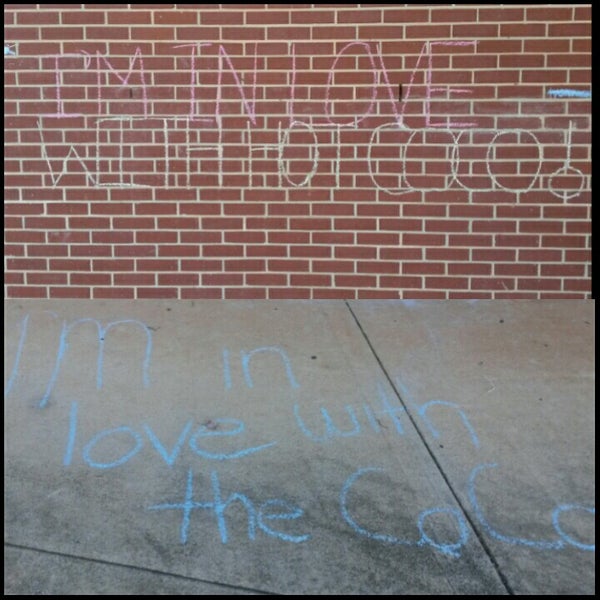 I'M IN LOVE
WITH HOT COCO!
I'M in
love with
the CoCo